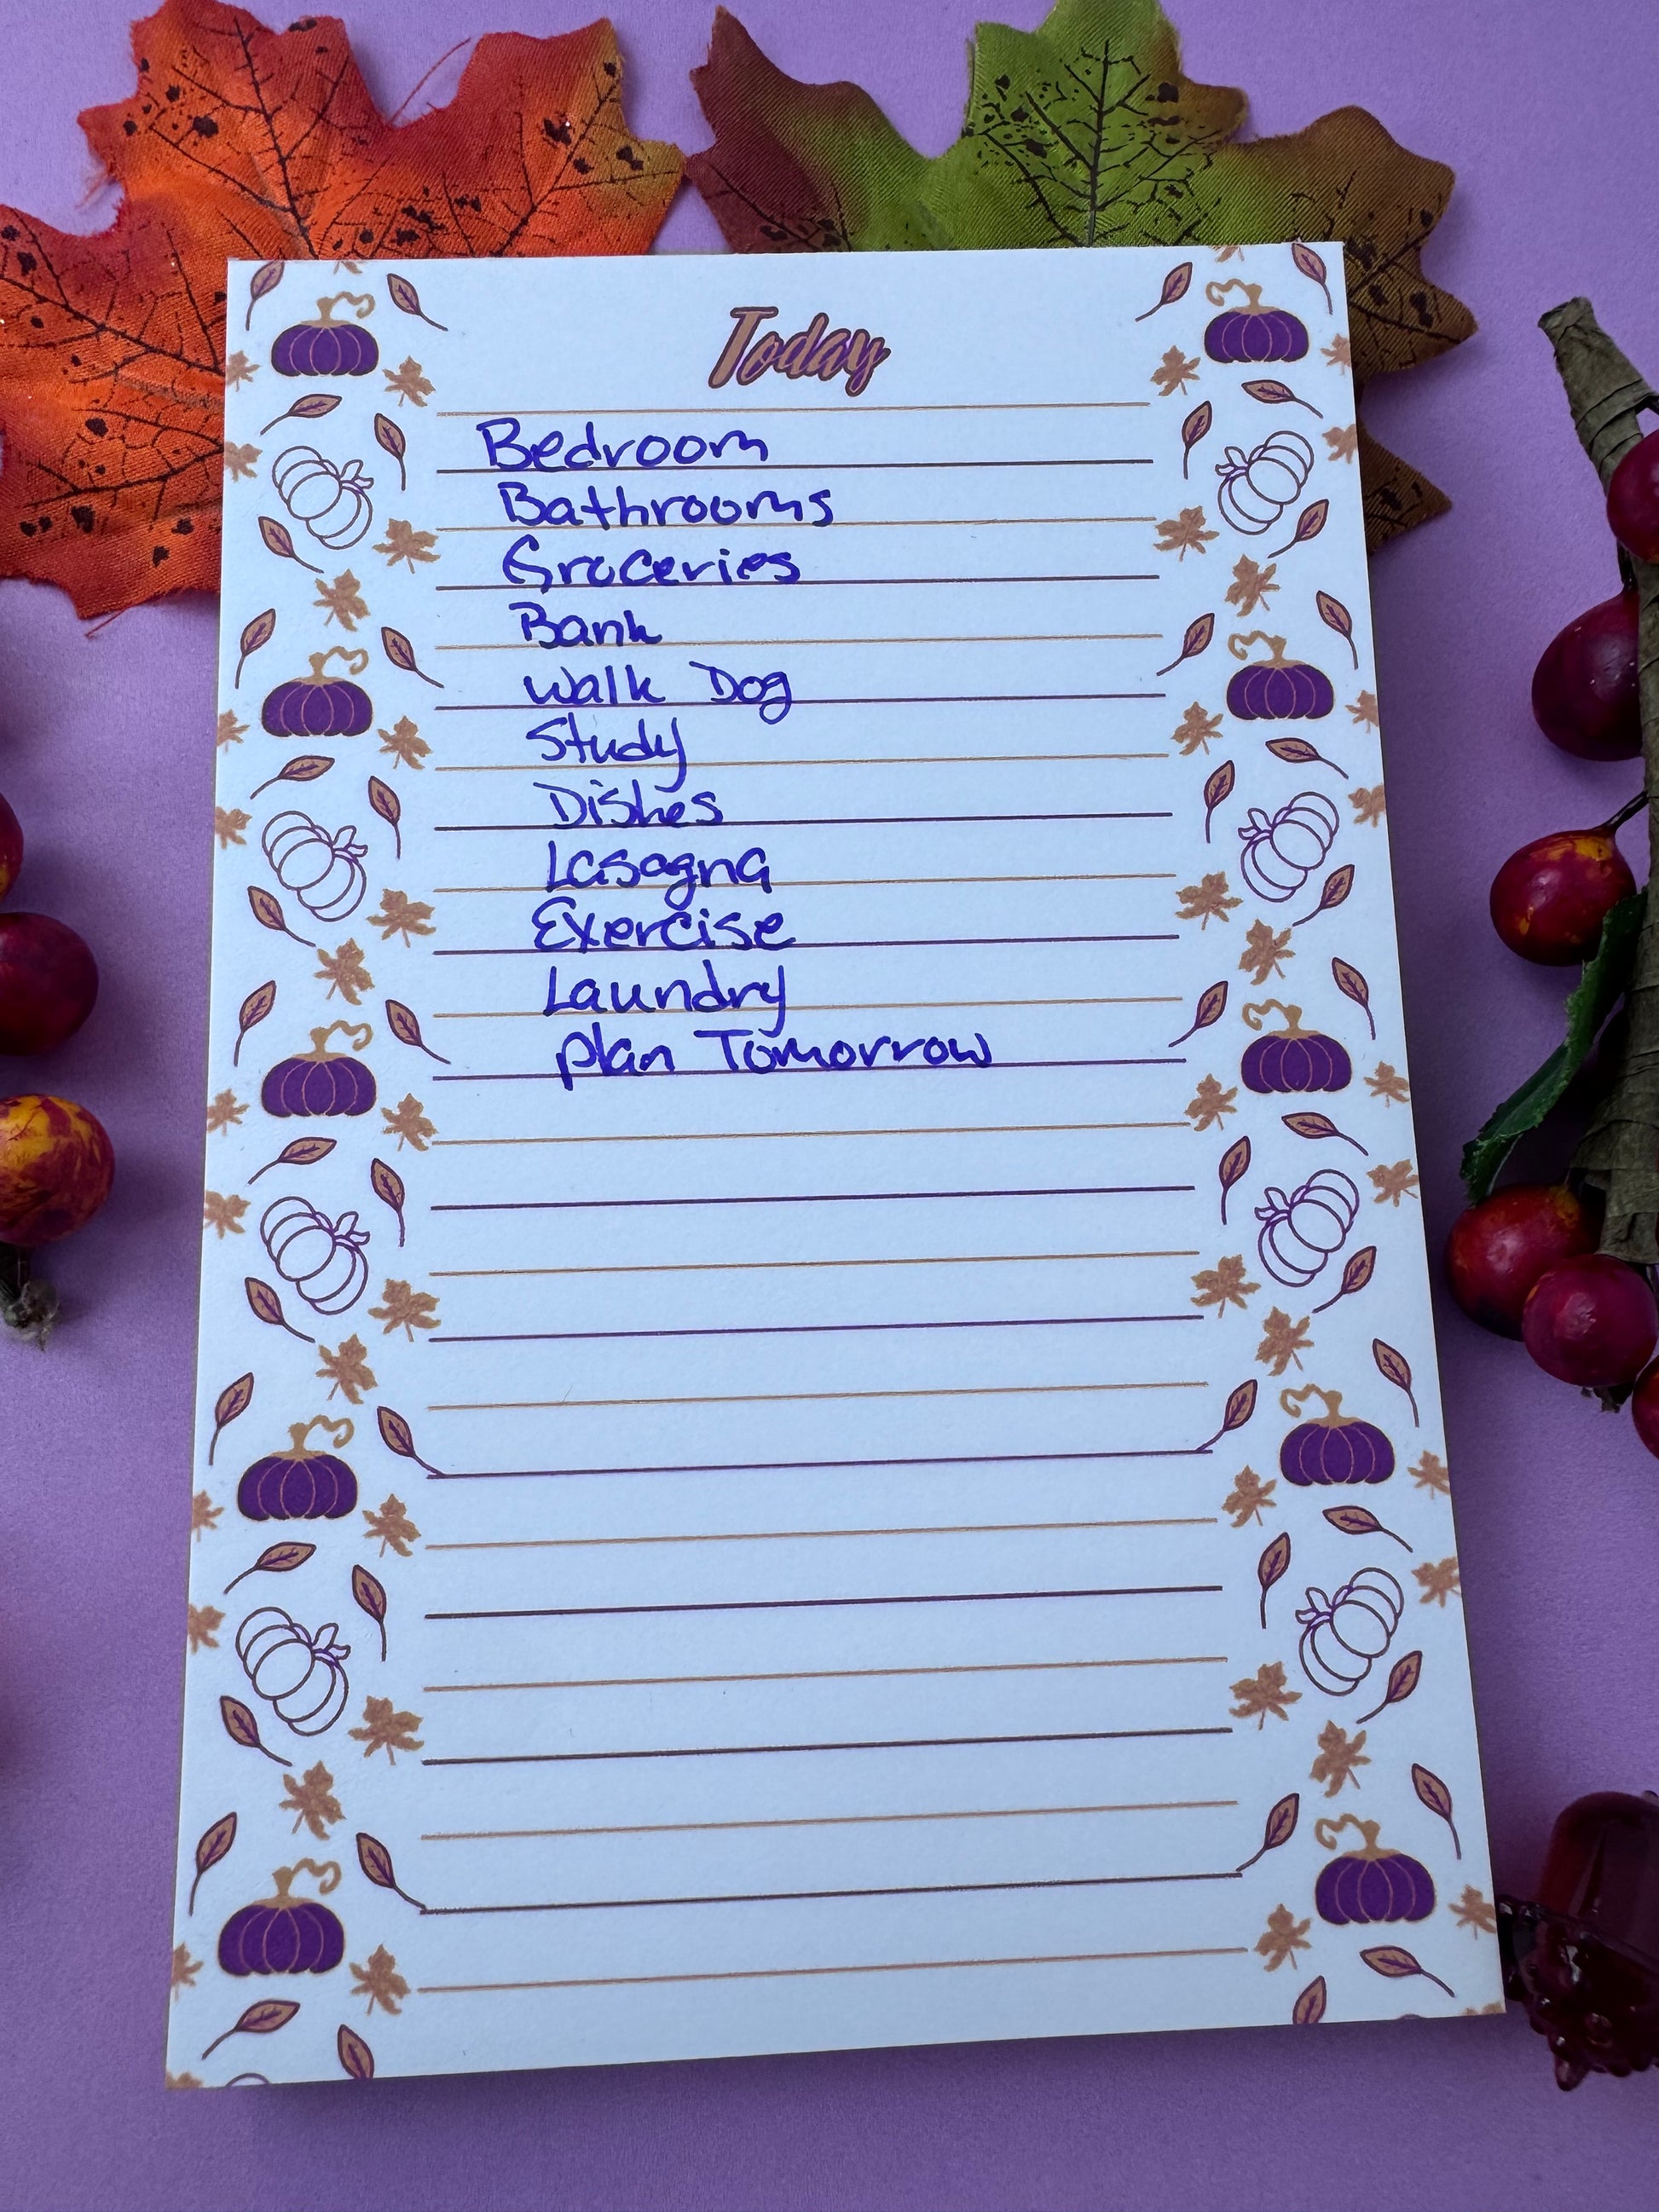 Today
Bedroom
Bathrooms
Groceries
Bank
Walk Dog
Study
Dishes
Lasagna
Exercise
Laundry
plan Tomorrow